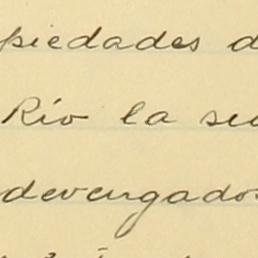 piedades d
Río la su
devengados